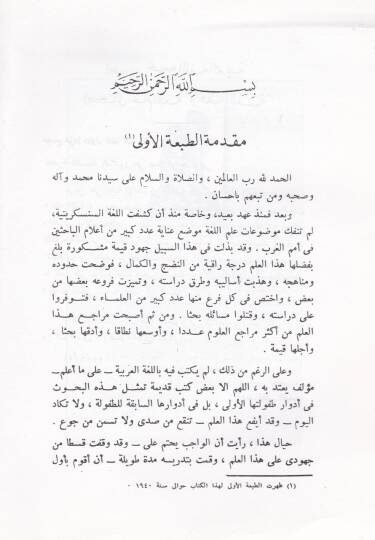 بسم الله الرحمن الرحيم
مقدمة الطبعة الأولى(١)
الحمد لله رب العالمين ، والصلاة والسلام على سيدنا محمد وآله
وصحبه ومن تبعهم باحسان .
وبعد فمنذ عهد بعيد، وخاصة منذ أن كشفت اللغة السنسكريتية،
لم تنفك موضوعات علم اللغة موضع عناية عدد كبير من أعلام الباحثين
في أمم الغرب . وقد بذلت في هذا السبيل جهود قيمة مشكورة بلغ
بفضلها هذا العلم درجة راقية من النضج والكمال ، فوضحت حدوده
ومناهجه ، وهذبت أساليبه وطرق دراسته ، وتميزت فروعه بعضها من
بعض ، واختص في كل فرع منها عدد كبير من العلماء ، فتوفروا
على دراسته ، وقتلوا مسائله بحثا . ومن ثم أصبحت مراجع هذا
العلم من أكثر مراجع العلوم عددا ، وأوسعها نطاقا ، وأدقها بحثا ،
وأجلها قيمة .
وعلى الرغم من ذلك ، لم يكتب فيه باللغة العربية ــ على ما أعلم ــ
مؤلف يعتد به ، اللهم الا بعض كتب قديمة تمثل هذه البحوث
في أدوار طفولتها الأولى ، بل في أدوارها السابقة للطفولة ، ولا تكاد
اليوم ــ وقد أيفع هذا العلم ــ تنقع من صدى ولا تسمن من جوع .
حيال هذا ، رأيت أن الواجب يحتم على ــ وقد وقفت قسطا من
جهودى على هذا العلم ، وقمت بتدريسه مدة طويلة ــ أن أقوم بأول
(١) ظهرت الطبعة الأولى لهذا الكتاب حوالى سنة ١٩٤٠ .